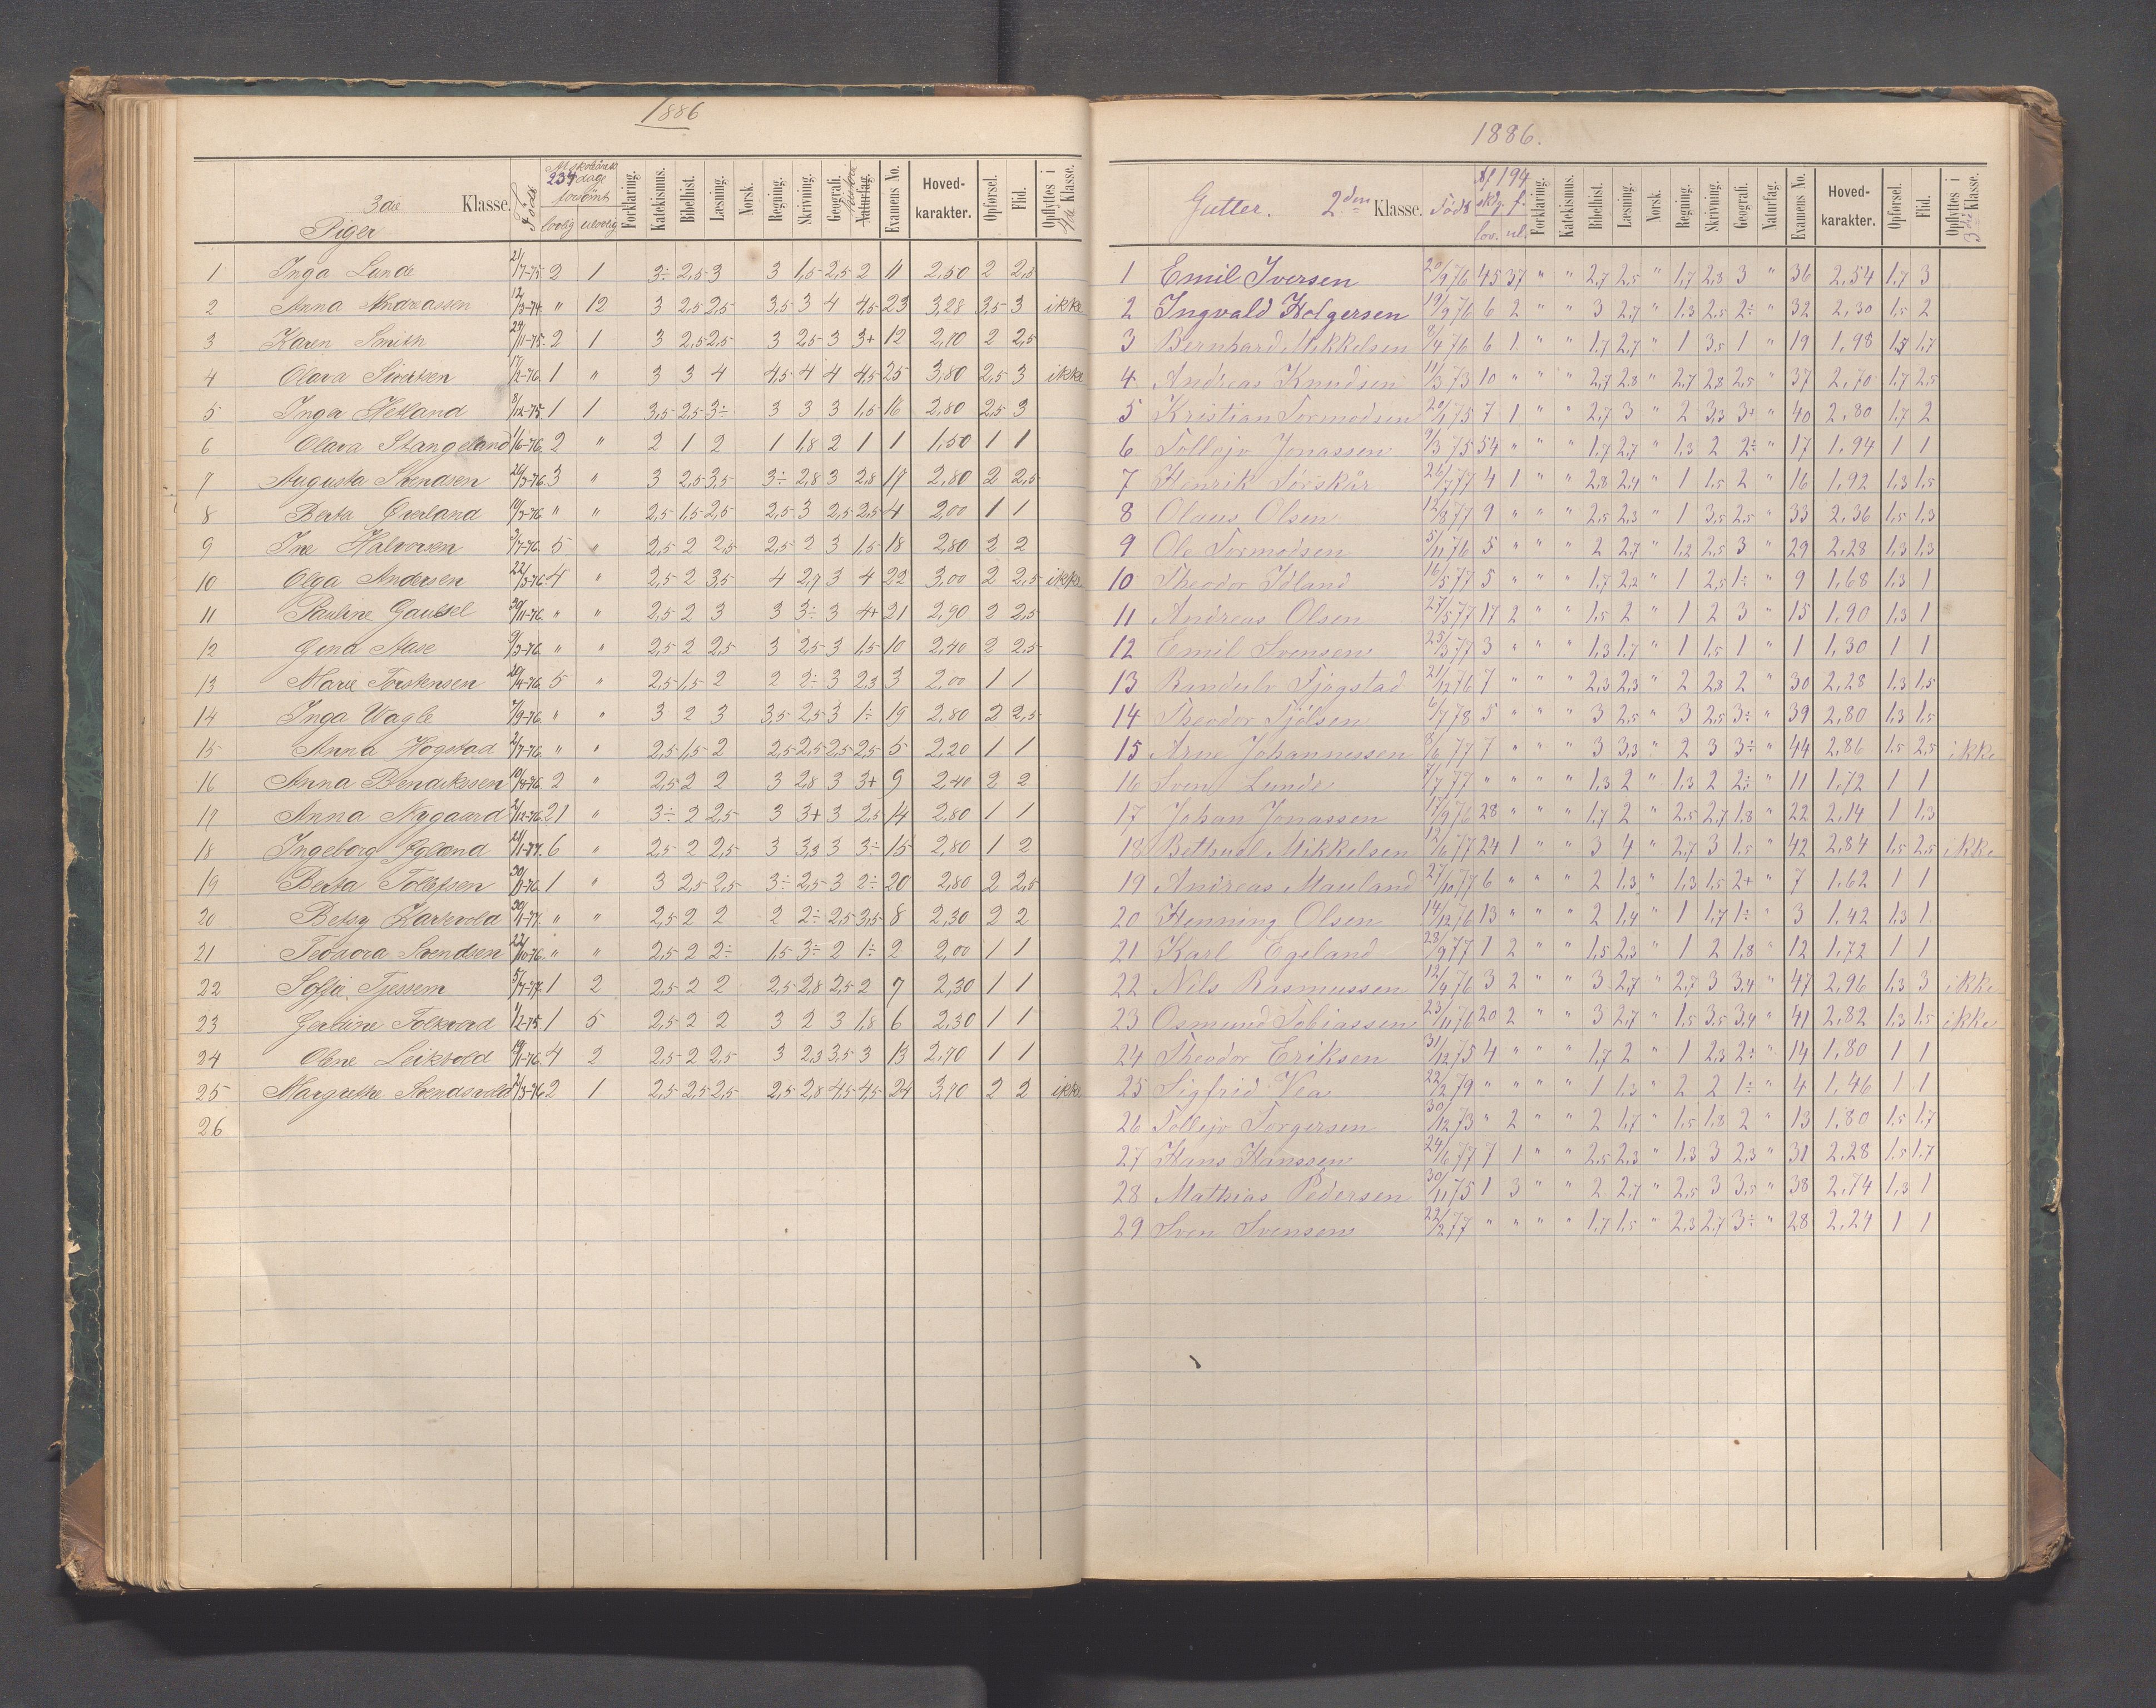 1886
3die Klasse. Født Af skoleårets 234 dage forsømt Forklaring. Katekismus. Bibelhist. Læsning. Norsk. Regning. Skrivning. Geografi. Historie Naturfag. Examens No. Hoved-karakter. Opførsel. Flid. Opflyttes i 4de Klasse.
Piger lovlig ulovlig
1 Inga Lunde 21/7-75 2 1 3÷ 2,5 3 3 1,5 2,5 2 11 2,50 2 2,5
2 Anna Andreassen 12/3-74 " 12 3 2,5 2,5 3,5 3 4 4,5 23 3,28 3,5 3 ikke
3 Karen Smith 29/11-75 2 1 3 2,5 2,5 3 2,5 3 3+ 12 2,70 2 2,5
4 Olava Sivertsen 17/12-76 1 " 3 3 4 4,5 4 4 4,5 25 3,80 2,5 3 ikke
5 Inger Hetland 8/12-75 1 1 3,5 2,5 3÷ 3 3 3 1,5 16 2,80 2,5 3
6 Olava Stangeland 1/6-76 2 " 2 1 2 1 1,8 2 1 1 1,50 1 1
7 Augusta Svendsen 26/3-76 3 " 3 2,5 3,5 3÷ 2,8 3 2,8 17 2,80 2 2,5
8 Berta Øverland 10/3-76 " " 2,5 1,5 2,5 2,5 3 2,5 2,5 4 2,00 1 1
9 Ine Halvorsen 3/7-76 5 " 2,5 2 2,5 2,5 2 3 1,5 18 2,80 2 2
10 Olga Andersen 22/3-76 4 " 2,5 2 3,5 4 2,7 3 4 22 3,00 2 2,5 ikke
11 Pauline Gausel 30/11-76 " " 2,5 2 3 3 3÷ 3 4+ 21 2,90 2 2,5
12 Gina Aase 9/3-76 " " 2,5 2 2,5 3 2,5 3 1,5 10 2,40 2 2,5
13 Marie Torstensen 20/4-76 5 " 2,5 1,5 2 2 2÷ 3 2,3 3 2,00 1 1
14 Inga Vagle 7/9-76 " " 3 2 3 3,5 2,5 3 1÷ 19 2,80 2 2,5
15 Anna Høgstad 2/7-76 " " 2,5 1,5 2 2,5 2,5 2,5 2,5 5 2,20 1 1
16 Anna Bendikssen 10/8-76 2 " 2,5 2 2 3 2,8 3 3+ 9 2,40 2 2
17 Anna Nygaard 2/12-76 21 " 3÷ 2 2,5 3 3+ 3 2,5 14 2,80 1 1
18 Ingeborg Igland 21/1-77 6 " 2,5 2 2,5 3 3,3 3 3÷ 15 2,80 1 2
19 Berta Tollefsen 1 " 3 2,5 2,5 3÷ 2,5 3 2÷ 20 2,80 2 2,5
20 Betsy Karlsvold 30/1-77 " " 2,5 2 2 2 2÷ 2,5 3,5 8 2,30 2 2
21 Teodora Svendsen 22/10-76 " " 2,5 2 2÷ 1,5 3÷ 2 1÷ 2 2,00 1 1
22 Sofie Tjessem 5/7-77 1 2 2,5 2 2 2,5 2,8 2,5 2 7 2,30 1 1
23 Gertine Folkvord 1/2-75 1 5 2,5 2 2 3 2 3 1,8 6 2,30 1 1
24 Oline Leikvold 19/1-76 4 2 2,5 2 2,5 3 2,3 3,5 3 13 2,70 1 1
25 Margrethe Svendsvold 2/3-76 2 1 2,5 2,5 2,5 2,5 2,8 4,5 4,5 24 3,70 2 2 ikke
26
1886.
Gutter. 2den Klasse. Født Af 194 skdg. f. lov. ul. Forklaring. Katekismus. Bibelhist. Læsning. Norsk. Regning. Skrivning. Geografi. Naturfag. Examens No. Hoved-karakter. Opførsel. Flid. Opflyttes i 3die Klasse.
1 Emil Iversen 20/9 76 45 37 " " 2,7 2,5 " 1,7 2,8 3 " 36 2,54 1,7 3
2 Ingvald Holgersen 19/9 76 6 2 " " 3 2,7 " 1,3 2,5 2÷ " 32 2,30 1,5 2
3 Bernhard Mikkelsen 8/4 76 6 1 " " 1,7 2,7 " 1 3,5 1 " 19 1,98 1,7 1,7
4 Andreas Knudsen 11/3 73 10 " " " 2,7 2,8 " 2,7 2,8 2,5 " 37 2,70 1,7 2,5
5 Kristian Tormodsen 20/1 75 7 1 " " 2,7 3 " 2 3,3 3+ " 40 2,80 1,7 2
6 Tolleiv Jonassen 9/3 75 54 " " " 1,7 2,7 " 1,3 2 2÷ " 17 1,94 1 1
7 Henrik Sørskår 26/7 77 4 1 " " 2,8 2,4 " 1 1,5 2 " 16 1,92 1,3 1,5
8 Olaus Olsen 12/8 77 9 " " " 2,5 2,3 " 1 3,5 2,5 " 33 2,36 1,5 1,3
9 Ole Tormodsen 5/11 76 5 " " " 2 2,7 " 1,2 2,5 3 " 29 2,28 1,3 1,3
10 Theodor Idland 16/5 77 5 " " " 1,7 2,2 " 1 2,5 1÷ " 9 1,68 1,3 1
11 Andreas Olsen 27/5 77 17 2 " " 1,5 2 " 1 2 3 " 15 1,90 1,3 1
12 Emil Svensen 23/3 77 3 " " " 1,3 1,7 " 1 1,5 1 " 1 1,30 1 1
13 Randulv Tjøgstad 21/12 76 7 " " " 2,3 2,3 " 2 2,8 2 " 30 2,28 1,3 1,5
14 Theodor Fjölsen 6/7 78 5 " " " 3 2,5 " 3 2,5 3÷ " 39 2,80 1,3 1,5
15 Arne Johannessen 8/6 77 7 " " " 3 3,3 " 2 3 3÷ " 44 2,86 1,5 2,5 ikke
16 Sven Lunde 7/7 77 " " " " 1,3 2 " 1,3 2 2÷ " 11 1,72 1 1
17 Johan Jonassen 17/9 76 28 " " " 1,7 2 " 2,5 2,7 1,8 " 22 2,14 1 1,3
18 Betheuel Mikkelsen 12/6 77 24 1 " " 3 4 " 2,7 3 1,5 " 42 2,84 1,5 2,5 ikke
19 Andreas Mauland 27/10 77 6 " " " 2 1,3 " 1,3 1,5 2+ " 7 1,62 1 1
20 Henning Olsen 14/12 76 13 " " " 2 1,4 " 1 1,7 1÷ " 3 1,42 1,3 1
21 Karl Egeland 28/9 77 1 2 " " 1,5 2,3 " 1 2 1,8 " 12 1,72 1 1
22 Nils Rasmussen 12/4 76 3 2 " " 3 2,7 " 2,7 3 3,4 " 47 2,96 1,3 3 ikke
23 Osmund Tobiassen 23/11 76 20 2 " " 3 2,7 " 1,5 3,5 3,4 " 41 2,82 1,3 1,5 ikke
24 Theodor Eriksen 31/12 75 4 " " " 1,7 2 " 1 2,3 2÷ " 14 1,80 1 1
25 Sigfrid Vea 22/2 79 " " " " 1 1,3 " 2 2 1÷ " 4 1,46 1 1
26 Tolleiv Torgersen 30/12 73 " 2 " " 2 1,7 " 1,5 1,8 2 " 13 1,80 1,5 1,7
27 Hans Hanssen 24/6 77 7 1 " " 2,5 2,3 " 1,3 3 2,3 " 31 2,28 1,5 1,7
28 Mathias Pedersen 30/11 75 1 3 " " 2 2,7 " 2,5 3 3,5 " 38 2,74 1,3 1
29 Sven Svensen 22/2 77 " " " " 1,7 1,5 " 2,3 2,7 3÷ " 28 2,24 1 1